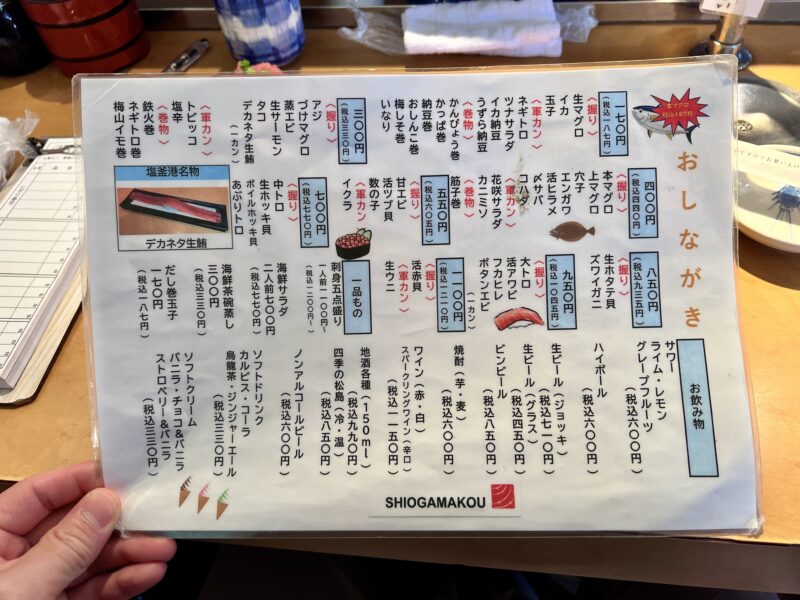 おしながき
生マグロ
税込187円
一七〇円
(税込一八七円)
〈握り〉
生マグロ
イカ
玉子
〈軍カン〉
ネギトロ
ツナサラダ
イカ納豆
うずら納豆
〈巻物〉
かんぴょう巻
かっぱ巻
納豆巻
おしんこ巻
梅しそ巻
いなり
三〇〇円
(税込三三〇円)
〈握り〉
アジ
づけマグロ
蒸エビ
生サーモン
タコ
デカネタ生鮪
(一カン)
〈軍カン〉
トビッコ
塩辛
〈巻物〉
鉄火巻
ネギトロ巻
梅山イモ巻
四〇〇円
(税込四四〇円)
〈握り〉
本マグロ
上マグロ
穴子
エンガワ
活ヒラメ
〆サバ
コハダ
〈軍カン〉
花咲サラダ
カニミソ
〈巻物〉
筋子巻
五五〇円
(税込六〇五円)
〈握り〉
甘エビ
活ツブ貝
数の子
〈軍カン〉
イクラ
七〇〇円
(税込七七〇円)
〈握り〉
中トロ
生ホッキ貝
ボイルホッキ貝
あぶりトロ
塩釜港名物
デカネタ生鮪
八五〇円
(税込九三五円)
〈握り〉
生ホタテ貝
ズワイガニ
九五〇円
(税込一〇四五円)
〈握り〉
大トロ
活アワビ
フカヒレ
ボタンエビ
(一カン)
一一〇〇円
(税込一二一〇円)
〈握り〉
活赤貝
〈軍カン〉
生ウニ
一品もの
刺身五点盛り
一人前一一〇〇円〜
(税込一二〇〇円〜)
海鮮サラダ
二人前七〇〇円
(税込七七〇円)
海鮮茶碗蒸し
三〇〇円
(税込三三〇円)
だし巻玉子
一七〇円
(税込一八七円)
お飲み物
サワー
ライム・レモン
グレープフルーツ
(税込六〇〇円)
ハイボール
(税込六〇〇円)
生ビール(ジョッキ)
(税込七一〇円)
生ビール(グラス)
(税込四五〇円)
ビンビール
(税込八五〇円)
焼酎(芋・麦)
(税込六〇〇円)
ワイン(赤・白)
スパークリングワイン(辛口)
(税込二一五〇円)
地酒各種(150ml)
(税込九九〇円)
四季の松島(冷・温)
(税込八五〇円)
ノンアルコールビール
(税込六〇〇円)
ソフトドリンク
カルピス・コーラ
烏龍茶・ジンジャーエール
(税込三三〇円)
ソフトクリーム
バニラ・チョコ&バニラ
ストロベリー&バニラ
(税込三三〇円)
SHIOGAMAKOU